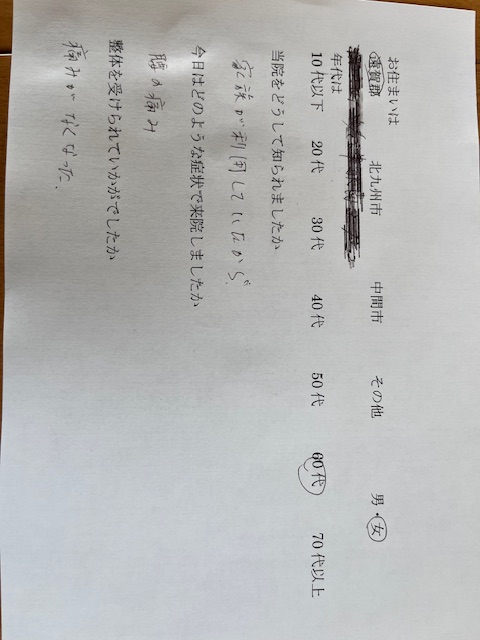 お住まいは
遠賀郡 北九州市 中間市 その他 男・女
年代は
10代以下 20代 30代 40代 50代 60代 70代以上
当院をどうして知られましたか
家族が利用していたから。
今日はどのような症状で来院しましたか
腕の痛み
整体を受けられていかがでしたか
痛みがなくなった。